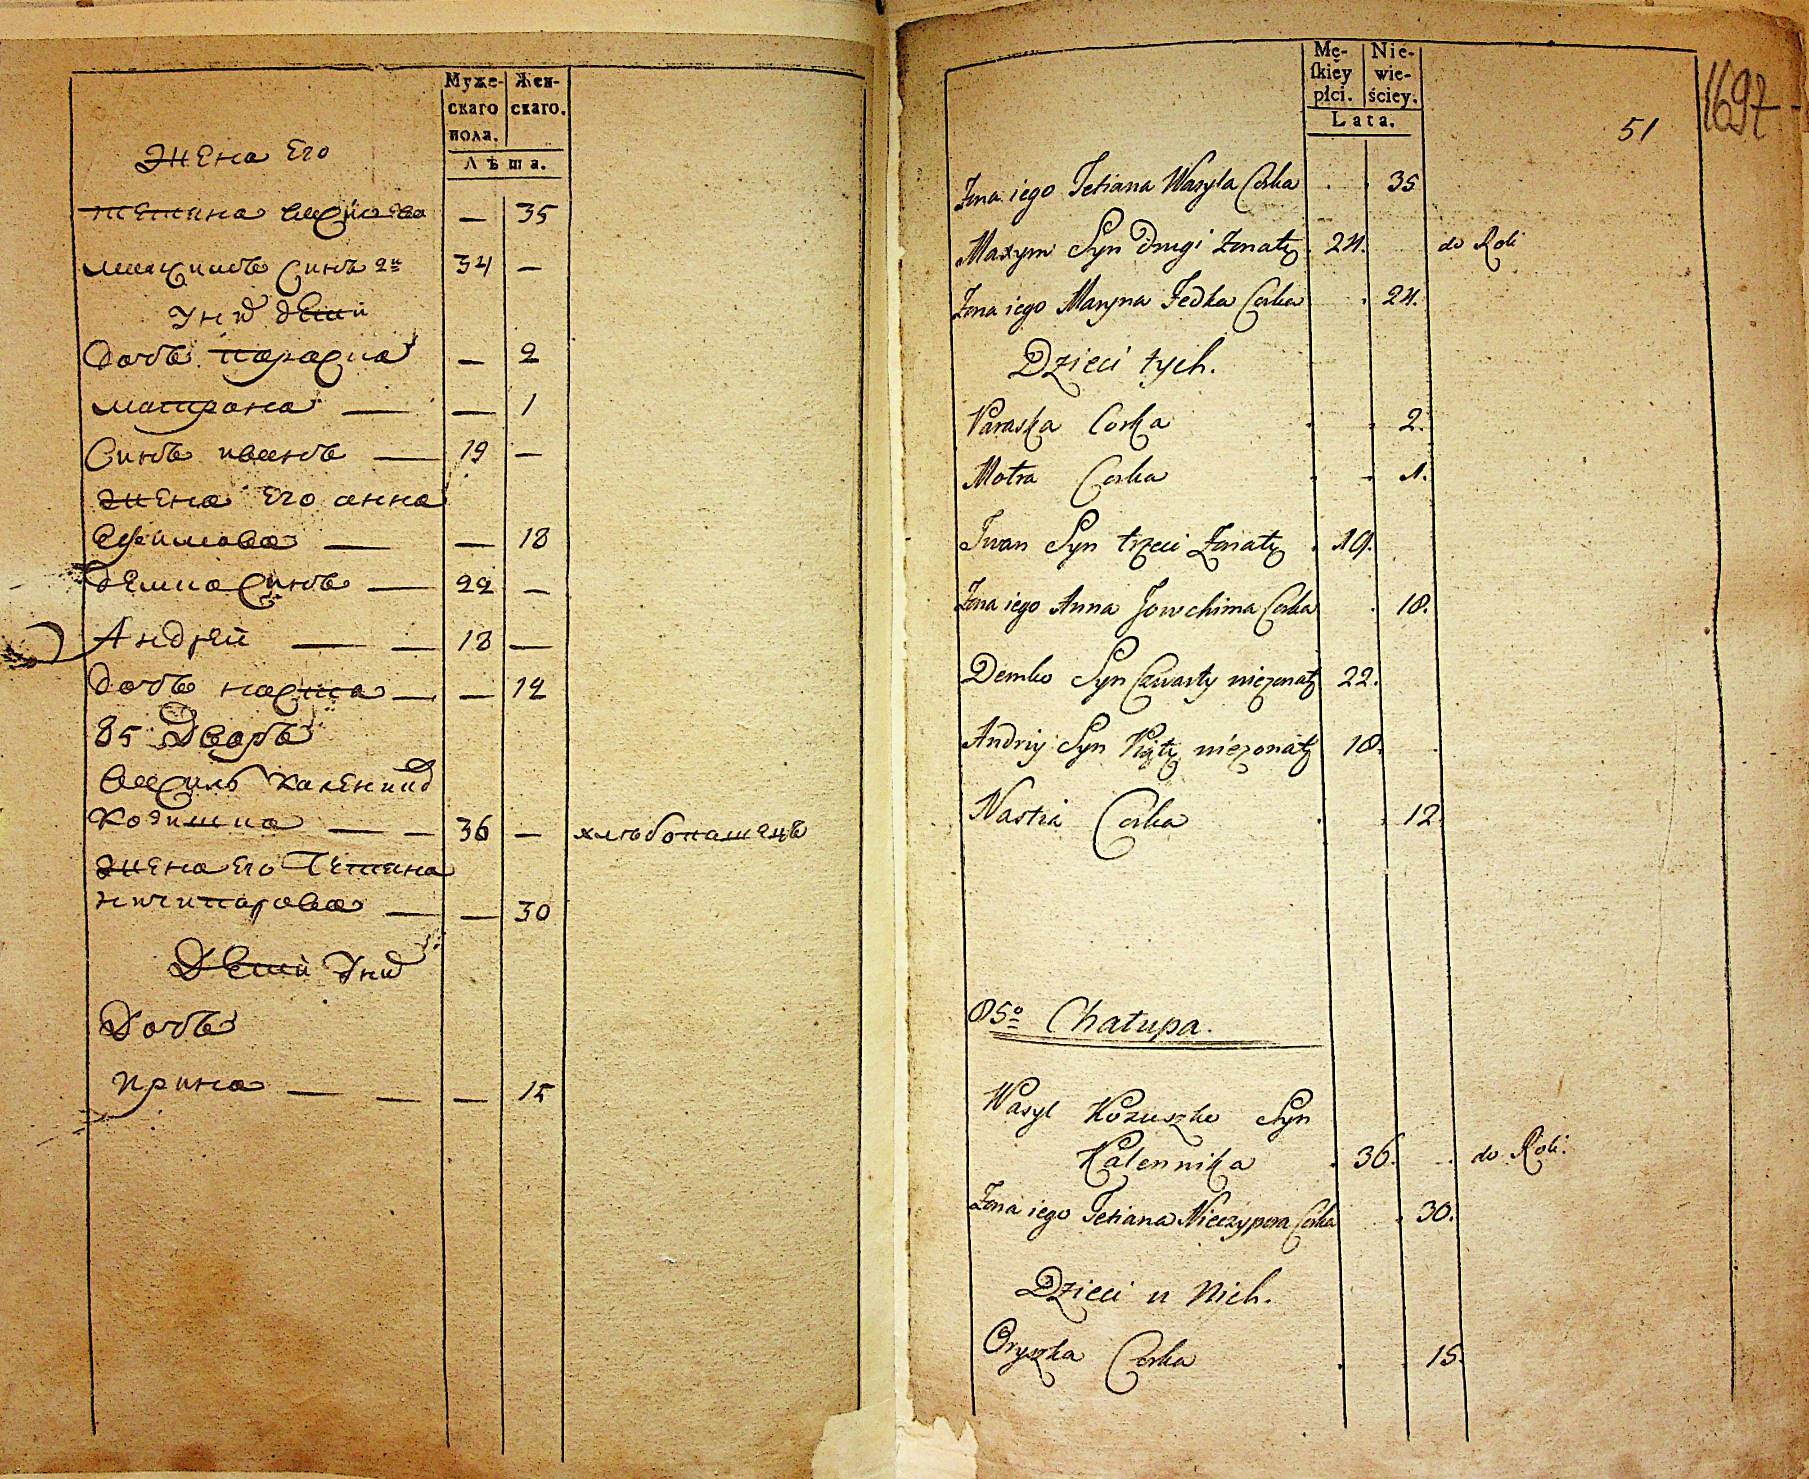 Муже-
скаго
пола.
Жен-
скаго.
Лѣта.
жена его
тетина василева — 35
максимъ синъ 2й 34 —
у них дети
дочъ параска — 2
матрона — — 1
Синъ иванъ — 19 —
жена его анна
ефимова — — 18
демко синъ — 22 —
Андрей — — 18 —
дочъ настя — — 12
85 Дворъ
василь каленик
козушка — — 36 — хлѣбопашецъ
жена его Тетяна
ничипорова — — 30
Дети у них
Дочъ
ирина — — — 15
Mę-
skiey
płci.
Nie-
wie-
ściey.
Lata.
51
1697
Zona iego Tetiana Wasyla Corka . . 35
Maxym Syn drugi Zonaty . 24. do Roli
Zona iego Maryna Fedka Corka . 24.
Dzieci tych.
Paraska Corka . . 2.
Motra Corka . . 1.
Iwan Syn trzeci Zonaty . 19.
Zona iego Anna Jowchima Corka . 18.
Demko Syn Czwarty niezonaty 22.
Andriy Syn Piąty niezonaty 18.
Nastia Corka . . 12.
85o Chałupa.
Wasyl Kozuszko Syn
Kalennika . 36. . do Roli.
Zona iego Tetiana Nieczypora Corka . 30.
Dzieci u Nich.
Oryszka Corka . . 15.